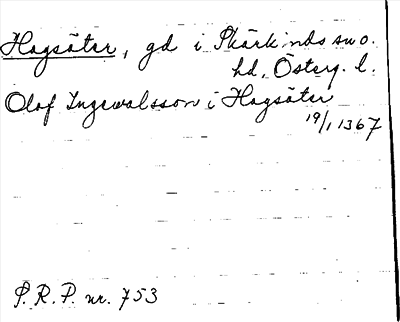 Hagsäter, gd i Skärkinds sn o.
hd, Österg. l.
Olof Ingevalsson i Hagsäter
19/1 1367
S.R.P. nr. 753